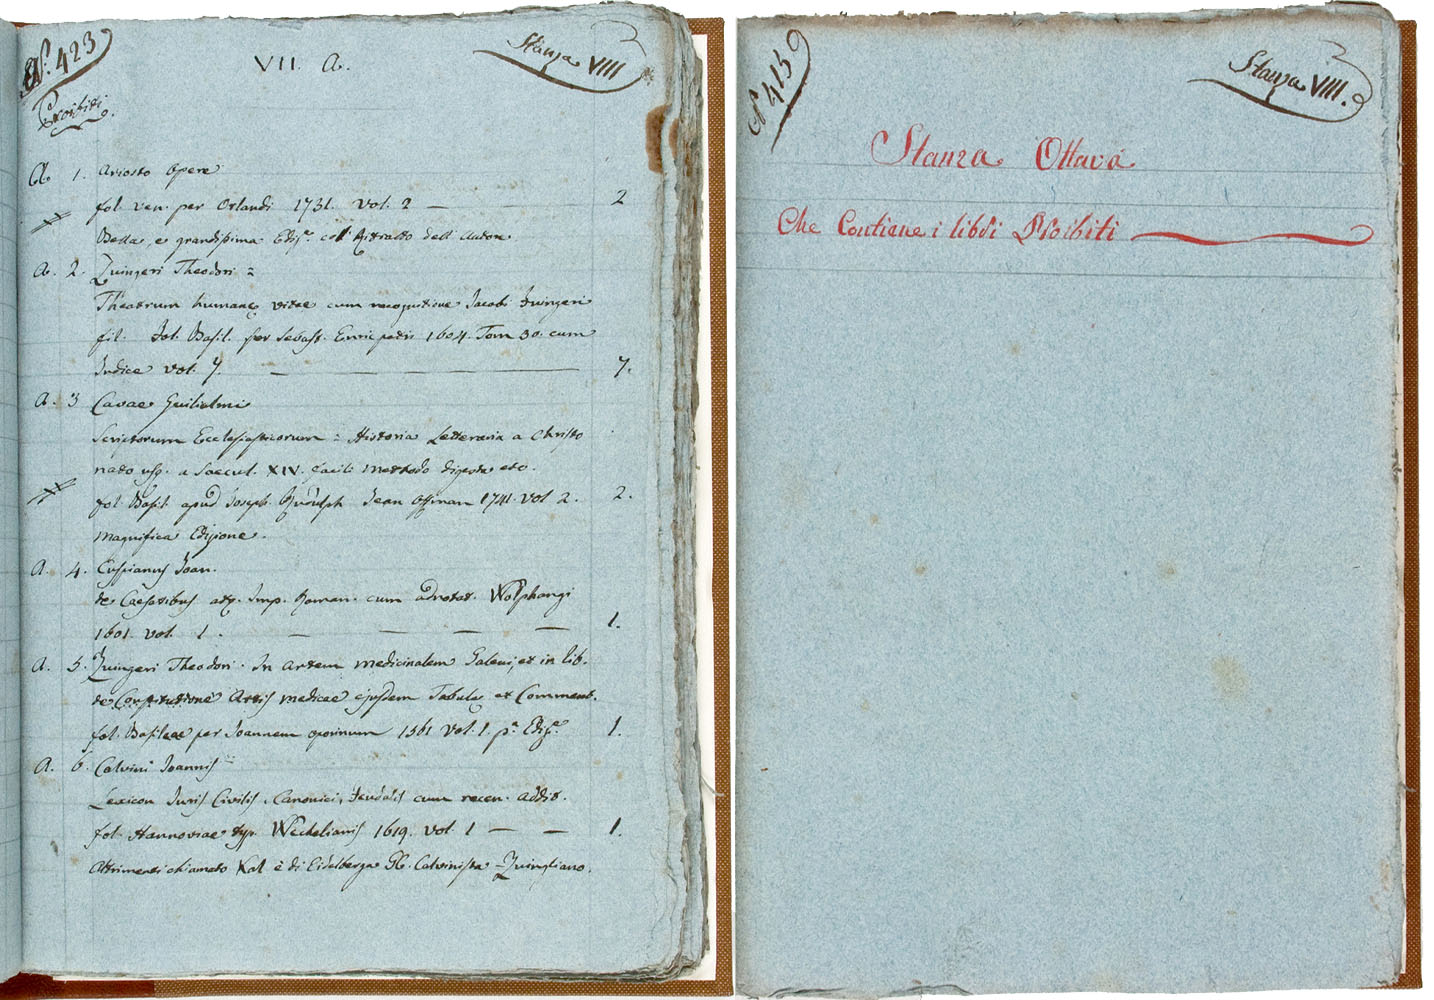 N. 423
VII. A.
Stanza VIIII
Proibiti
A. 1. Ariosto Opere
fol. ven. per Orlandi 1731. vol. 2 — 2
Bella, e grandissima Ediz.e col Ritratto dell Autore
A. 2. Zuingeri Theodori =
Theatrum humanę vitae cum recognitione Jacobi Zuingeri
fil. fol. Basil. per Sebast. Enric petri 1604. Tom 30. cum
Indice vol. 7. — — 7.
A. 3 Cavae Guilielmi
Scriptorum Ecclesiasticorum = Historia Letteraria a Christo
nato usq. a Saecul. XIV. facili methodo digesta etc.
fol. Basil. apud Joseph. Rudolph Jean Offman 1741. vol 2. 2.
Magnifica Edizione.
A. 4. Cuspianus Joan.
de Caesaribus atq. Imp. Roman. cum adnotat. Wolphangi
1601. vol. 1. — — — — 1.
A. 5. Zuingeri Theodori. In artem medicinalem Galeni, et in lib.
de Constitutione Artis medicae ejusdem Tabulę et Comment.
fol. Basileae per Joannem oporinum 1561 vol. 1. p.a Ediz.e 1.
A. 6. Calvini Joannis =
Lexicon Juris Civilis, Canonici, feudalis cum recen. addit.
fol. Hannoviae typ. Wechelianis 1619. vol. 1 — — 1.
Altrimenti chiamato Kal è di Eidelberga Calvinista Zuingliano.
N. 415
Stanza VIII.
Stanza Ottava
Che Contiene i libri Proibiti